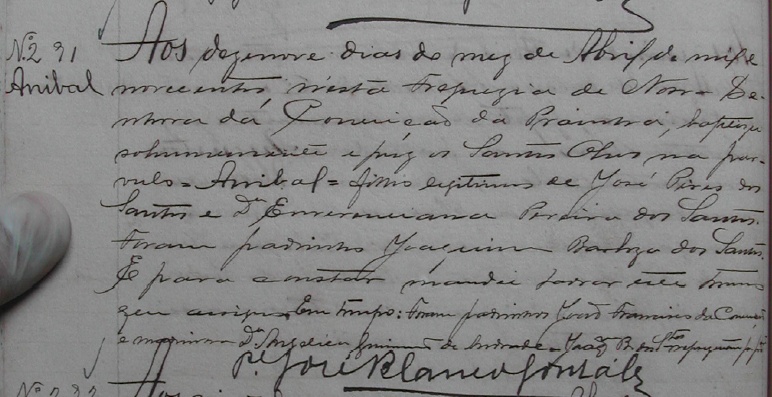 Nº 2 31 Aos dezenove dias do mez de Abril de mil e
Anibal novecentos, n'esta Freguezia de Nossa Se-
nhora da Conceição da Prainha, baptizei
solemnemente e puz os Santos Oleos na par-
vulo = Anibal = filho legitimo de José Pires dos
Santos e Dª Emerenciana Pereira dos Santos.
Foram padrinhos Joaquim Barboza dos Santos.
E para constar mandei lavrar este termo
que assigno. Em tempo: Foram padrinhos João Francisco da Conceição
e madrinha Dª Angelica de Andrade =
Pe. José Blanco González
Nº 2 32 Aos